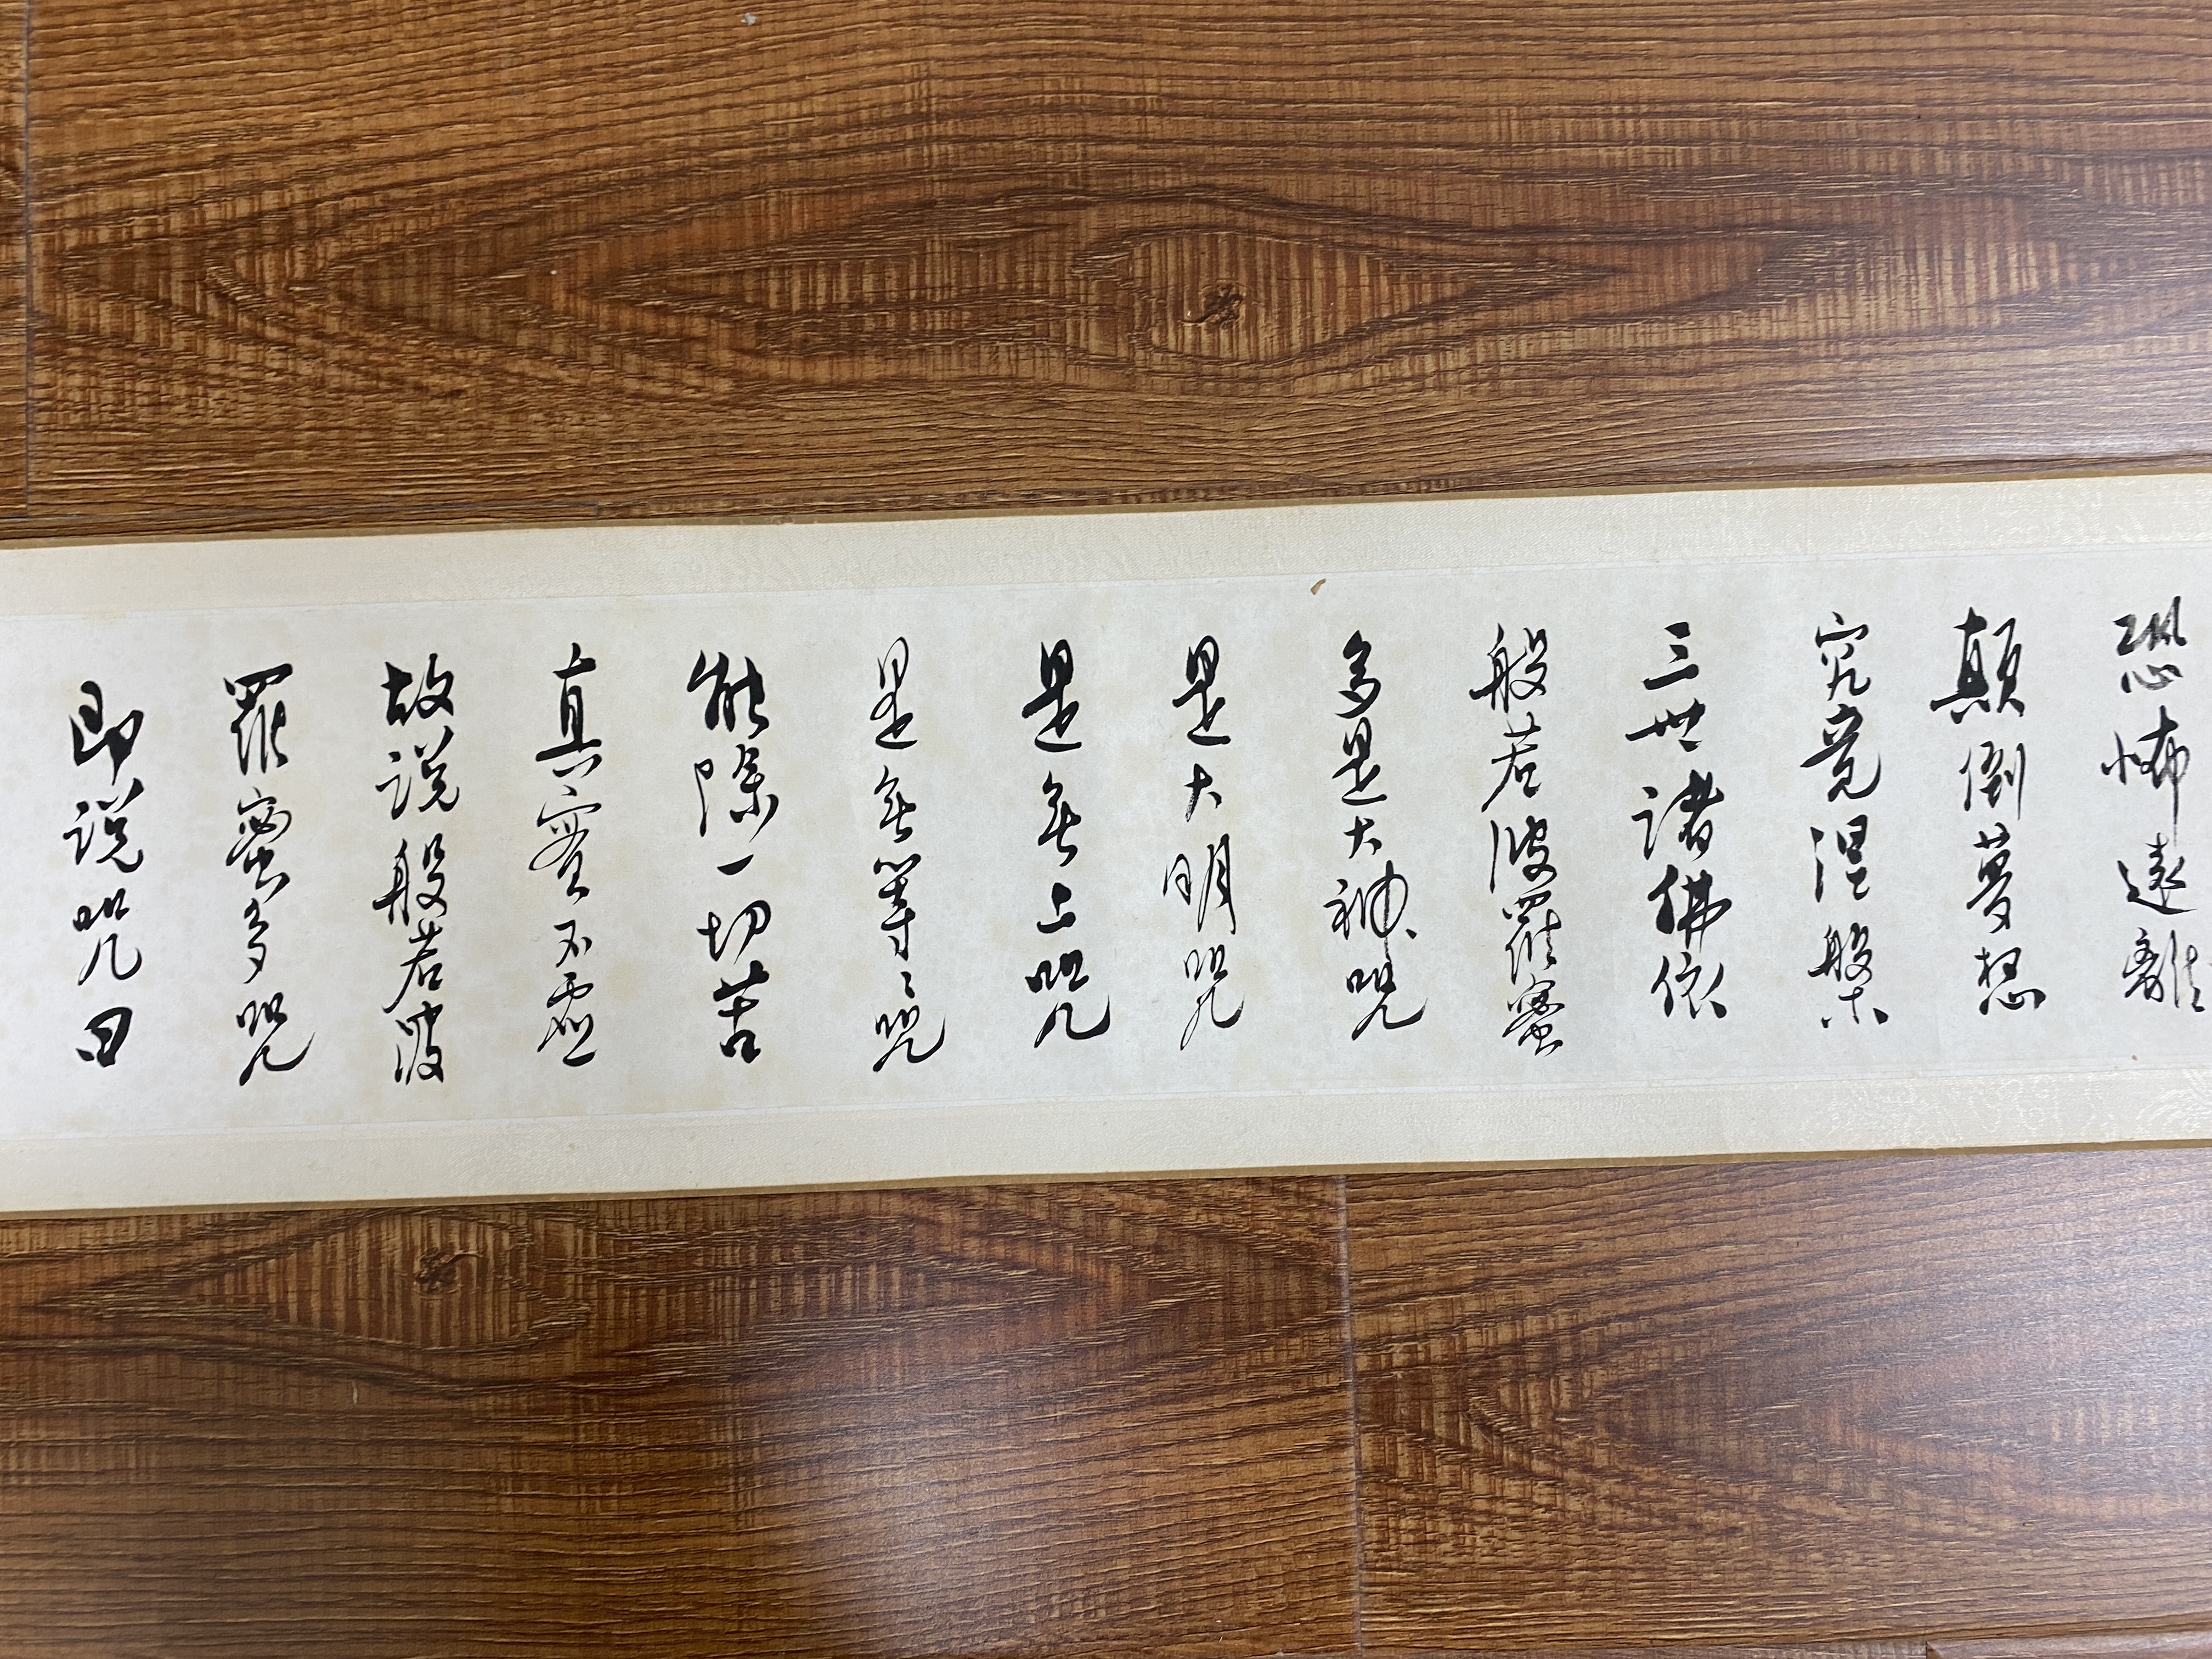 恐怖遠離
顛倒夢想
究竟涅槃
三世諸佛依
般若波羅蜜
多是大神咒
是大明咒
是無上咒
是無等々咒
能除一切苦
真實不虛
故说般若波
羅蜜多咒
即说咒曰